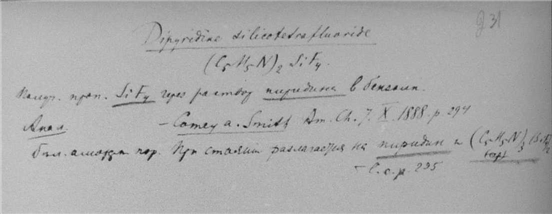 931
Dipyridine silicotetrafluoride
(C5H5N)2 SiF4.
Получ. проп. SiF4 через раствор пиридина в бензоле.
Анал. – Comey a. Smith Am. Ch. J. X. 1888. p. 294
бел. аморфн. пор. При стоянии разлагается на пиридин и (C5H5N)3
– l. c. p. 295